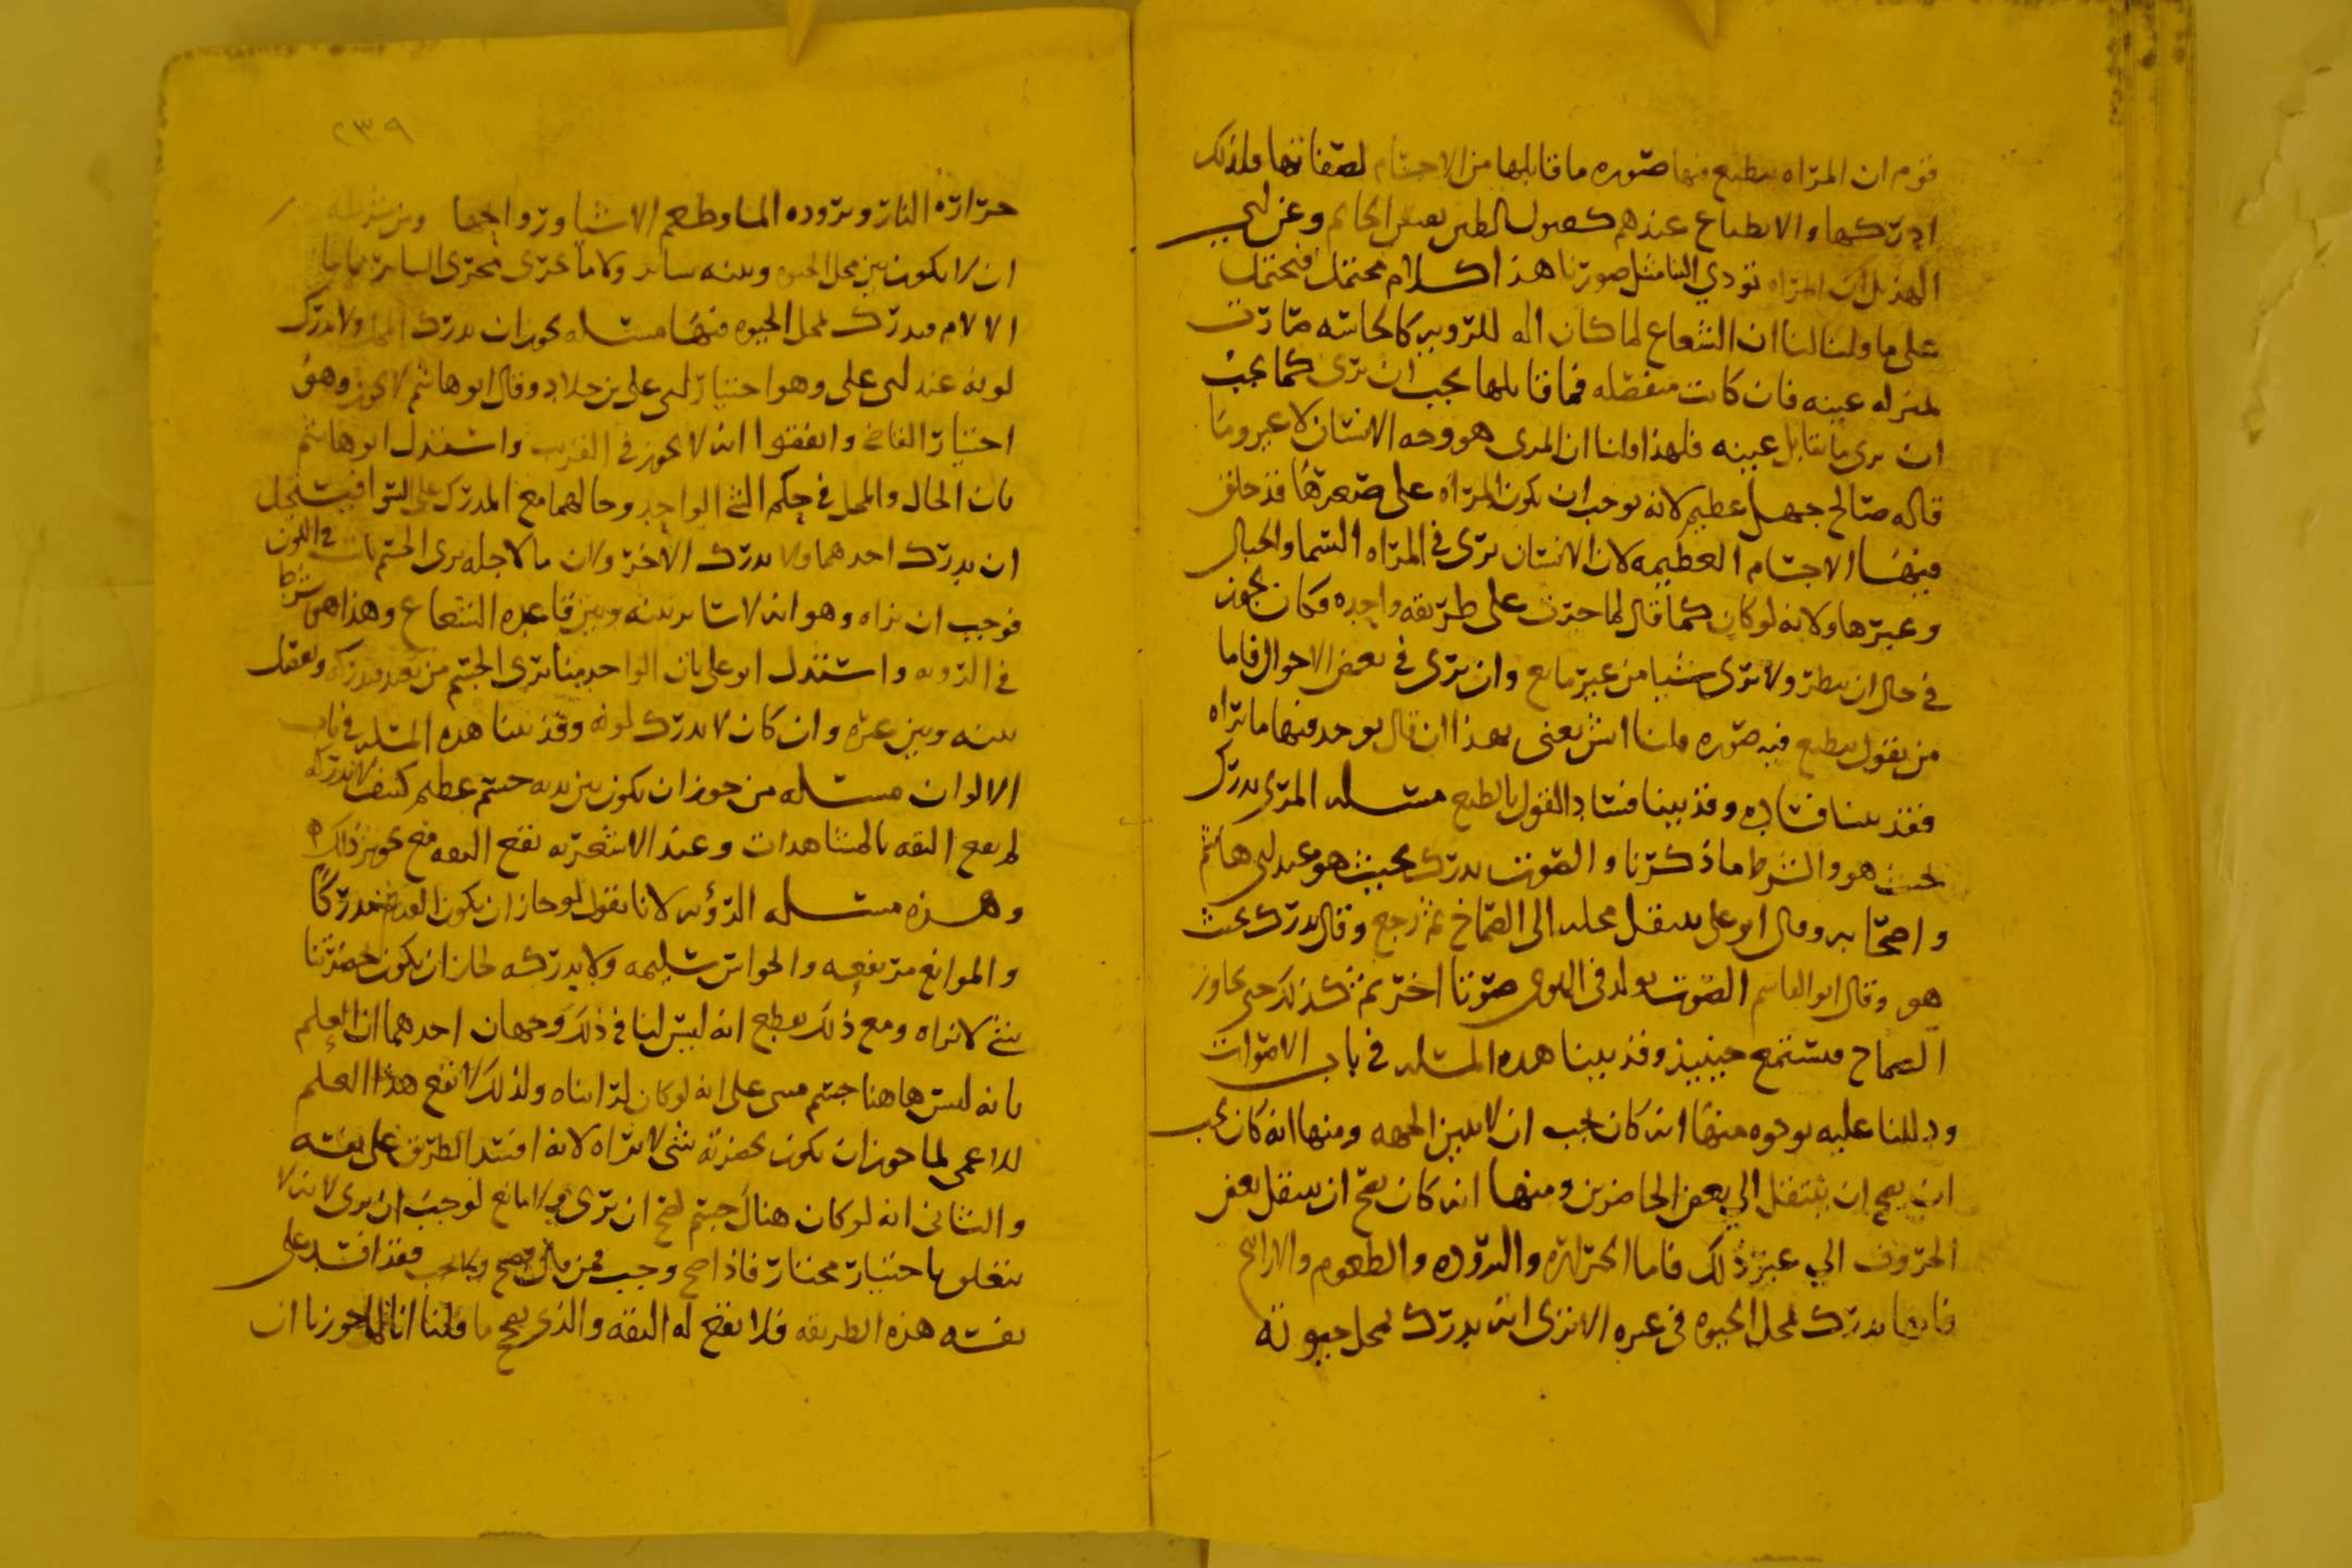 قوم ان المراه ينطبع فيها صوره ما قابلها من الاجسام لصقالتها فلذلك
ادركها والانطباع عندهم كقبول الطين نقش الخاتم وعن ابي
الهذيل ان المراه تودي الينا مثل صورتنا هذا كلام محتمل فيحتمل
على ما ولنا لنا ان الشعاع لما كان اله للروية كالحاسه صارت
بمنزله عينه فان كانت منفصله فما قابلها يجب ان يرى كما يجب
ان يرى ما يقابل عينه فلهذا قلنا ان المرى هو وجه الانسان لا غير وما
قاله صالح جهل عظيم لانه يوجب ان يكون المراه على صغرها قد خلق
فيها الاجسام العظيمه لان الانسان يرى في المراه السما والجبال
وغيرها ولانه لو كان كما قال لما جرت على طريقه واحده وكان يجوز
في حال ان ينظر ولا يرى شيا من غير مانع وان يرى في بعض الاحوال فاما
من يقول ينطبع فيه صوره قلنا ايش يعنى بهذا ان قال يوجد فيها ما تراه
فقد بينا فساده وقد بينا فساد القول بالطبع مسله المرى يدرك
بحيث هو والشرط ما ذكرنا والصوت يدرك بحيث هو عند ابي هاشم
واصحابه وقال ابو على ينتقل محله الى الصماخ ثم رجع وقال يدرك بحيث
هو وقال ابو القاسم الصوت يولد في الهوى صوتا اخر ثم كذلك حتى يجاوز
الصماخ فيستمع حينيذ وقد بينا هذه المسله في باب الاصوات
ودللنا عليه بوجوه منها انه كان يجب ان لا يتبين الجهه ومنها انه كان يجب
ان يصح ان ينتقل الي بعض الحاضرين ومنها انه كان يصح ان ينتقل بعض
الحروف الي غير ذلك فاما الحراره والبروده والطعوم والاراييح
فانها تدرك بمحل الحيوه في غيره الا ترى انه يدرك بمحل حيوته
٢٣٩
حرارة النار وبروده الما وطعم الاشيا وروايحها ومن شرطه
ان لا يكون بين محل الحيوه وبينه ساتر ولا ما يجرى مجرى الساتر فاما
الالام فيدرك بمحل الحيوه فيها مسله يجوز ان يدرك المحل ولا يدرك
لونه عند ابي على وهو اختيار ابي على بن خلاد وقال ابو هاشم لا يجوز وهو
اختيار القاضى واتفقوا انه لا يجوز في القريب واستدل ابو هاشم
بان الحال والمحل في حكم الشي الواحد وحالهما مع المدرك على السوا فيستحيل
ان يدرك احدهما ولا يدرك الاخر ولان ما لاجله يرى الجسم ثابت في اللون
فوجب ان يراه وهو انه لا ساتر بينه وبين قاعده الشعاع وهذا هو شرط
في الرويه واستدل ابو على بان الواحد منا يرى الجسم من بعد فيدركه ويفصل
بينه وبين غيره وان كان لا يدرك لونه وقد بينا هذه المسله في باب
الالوان مسله من جوز ان يكون بين يديه جسم عظيم كثيف لا يدركه
لم يصح الثقه بالمشاهدات وعند الاشعريه تصح الثقه مع تجويز ذلك
وهذه مسله الرؤيه لانا نقول لو جاز ان يكون القديم مدركا
والموانع مرتفعه والحواس سليمه ولا يدركه لجاز ان يكون بحضرتنا
شي لا نراه ومع ذلك يقطع انه ليس لنا في ذلك وجهان احدهما ان العلم
بانه ليس هاهنا جسم مبنى على انه لو كان لرايناه ولذلك لا يصح هذا العلم
للاعمى لما جوز ان يكون بحضرته شى لا يراه لانه افسد الطريق على نفسه
والثانى انه لو كان هناك جسم لصح ان يرى ولا مانع لوجب ان يرى لانه لا
يتعلق باختيار مختار فاذا صح وجب فمن قال يصح ولا يجب فقد افسد على
نفسه هذه الطريقه فلا يصح له الثقه والذى يصح ما قلنا انا لما جوزنا ان